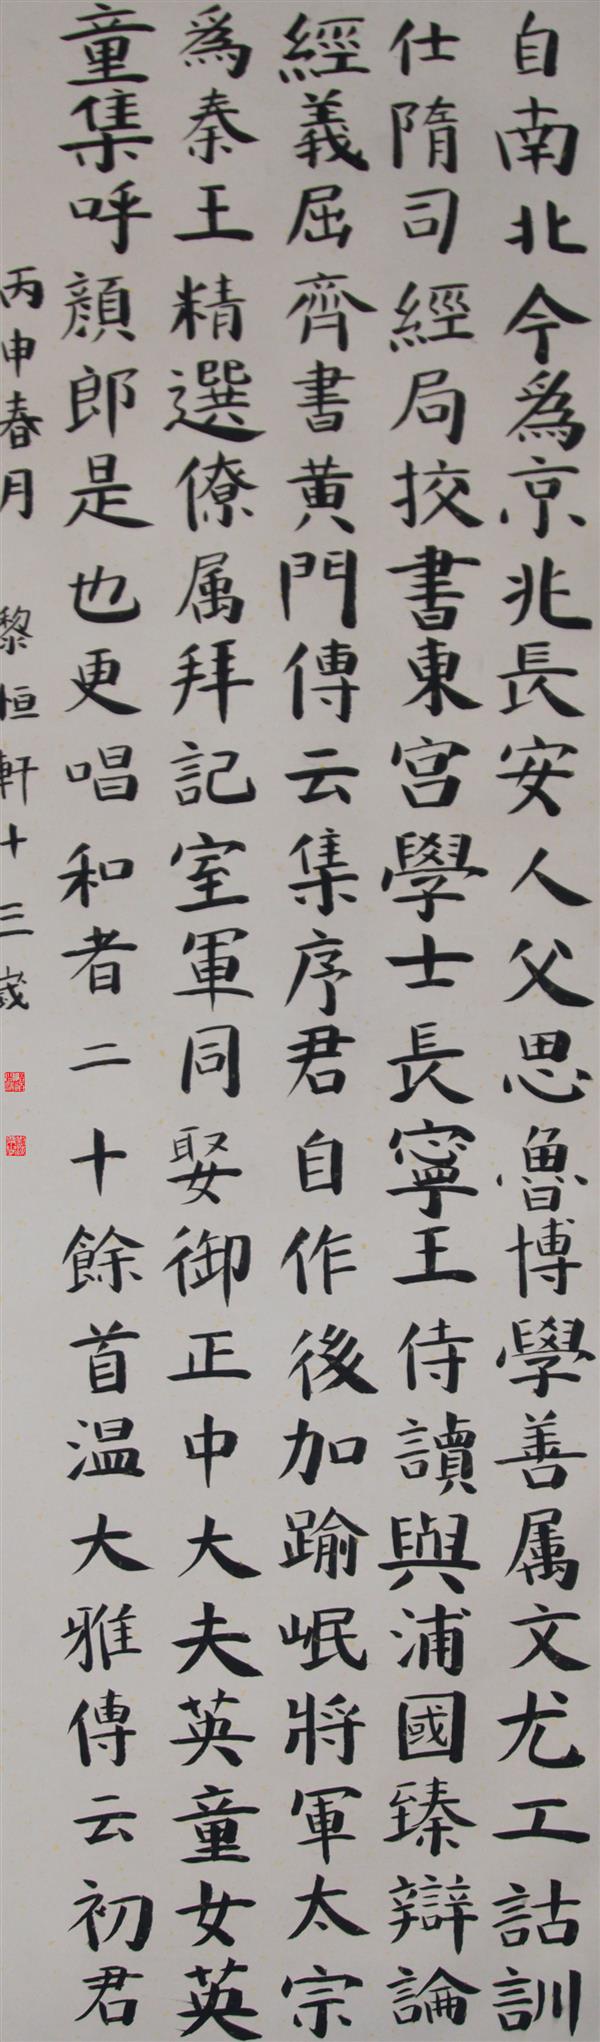 自南北今為京兆長安人父思魯博學善属文尤工詁訓
仕隋司經局挍書東宮學士長寧王侍讀與浦國臻辯論
經義屈齊書黄門傳云集序君自作後加踰岷將軍太宗
為秦王精選僚属拜記室軍同娶御正中大夫英童女英
童集呼顔郎是也更唱和者二十餘首温大雅傳云初君
丙申春月 黎恒軒十三歲